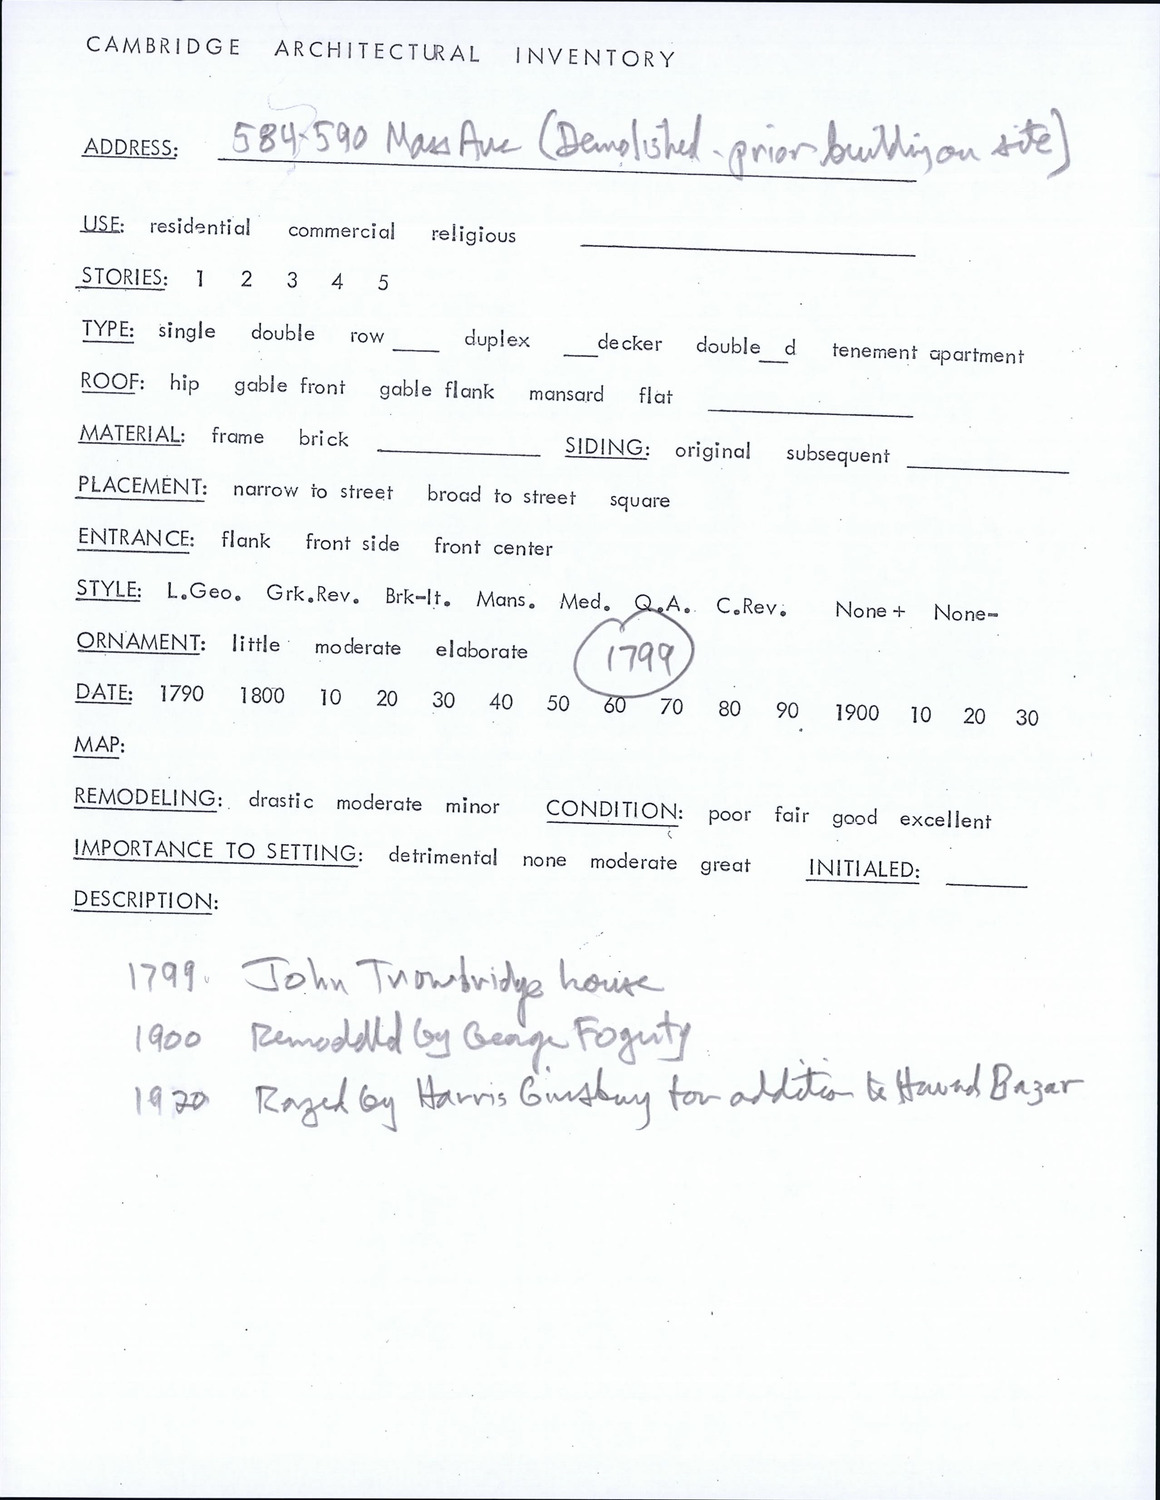 CAMBRIDGE ARCHITECTURAL INVENTORY
ADDRESS: 584-590 Mass Ave (Demolished - prior building on site)
USE: residential commercial religious
STORIES: 1 2 3 4 5
TYPE: single double row ___ duplex ___decker double__d tenement apartment
ROOF: hip gable front gable flank mansard flat
MATERIAL: frame brick SIDING: original subsequent
PLACEMENT: narrow to street broad to street square
ENTRANCE: flank front side front center
STYLE: L.Geo. Grk.Rev. Brk-It. Mans. Med. Q.A. C.Rev. None+ None-
ORNAMENT: little moderate elaborate 1799
DATE: 1790 1800 10 20 30 40 50 60 70 80 90 1900 10 20 30
MAP:
REMODELING: drastic moderate minor CONDITION: poor fair good excellent
IMPORTANCE TO SETTING: detrimental none moderate great INITIALED:
DESCRIPTION:
1799 John Trowbridge house
1900 Remodelld by George Fogerty
Razed by Harris Ginsburg for addition to Havard Bazar